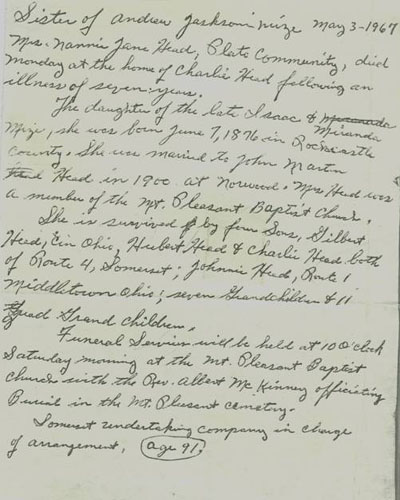 Sister of Andrew Jackson Mize May 3-1967
Mrs. Nannie Jane Head, Plato Community, died
Monday at the home of Charlie Head following an
illness of seven years.
The daughter of the late Isaac &
Miranda
Mize, she was born June 7, 1876 in Rockcastle
County. She was married to John Martin
Head in 1900 at Norwood. Mrs Head was
a member of the Mt. Pleasant Baptist Church.
She is survived by four Sons, Gilbert
Head, Ohio, Hubert Head & Charlie Head both
of Route 4, Somerset; Johnnie Head, Route 1
Middletown Ohio; seven Grandchildren & 11
Grand children.
Funeral Services will be held at 10 O'clock
Saturday morning at the Mt. Pleasant Baptist
Church with the Rev. Albert McKinney officiating
Burial in the Mt. Pleasant cemetry.
Somerset undertaking company in charge
of arrangement. age 91.